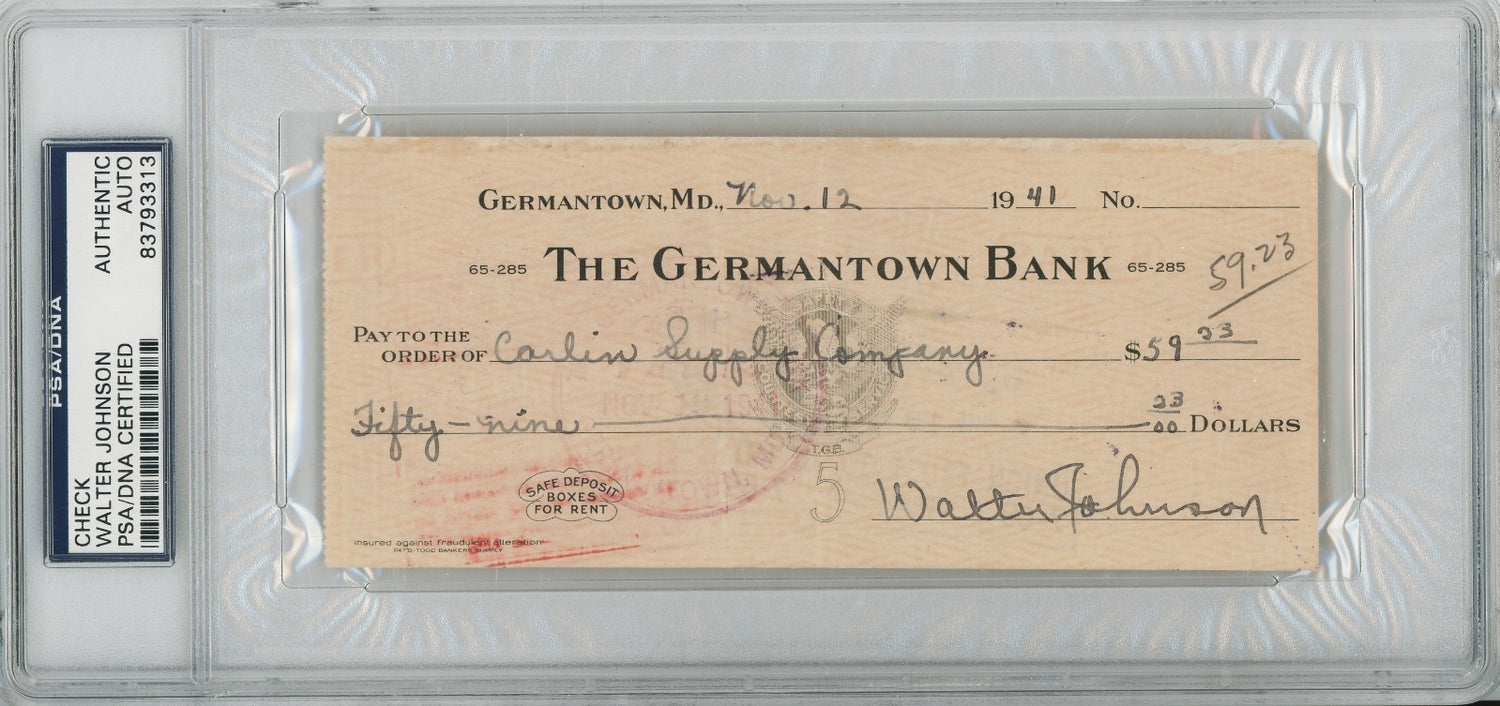 PSA/DNA
CHECK
WALTER JOHNSON
PSA/DNA CERTIFIED
AUTHENTIC
AUTO
83793313
GERMANTOWN, MD., Nov. 12 1941 NO.
65-285 THE GERMANTOWN BANK 65-285
59.23
PAY TO THE
ORDER OF Carlin Supply Company $59 23
Fifty-nine 23/00 DOLLARS
T.G.B.
SAFE DEPOSIT
BOXES
FOR RENT
5
Walter Johnson
insured against fraudulent alteration